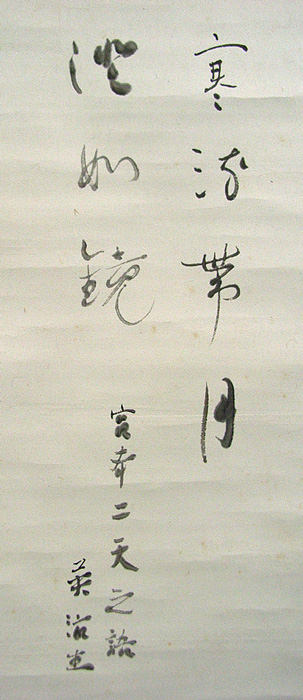 寒流帯月
澄如鏡
宮本二天之語
英治生